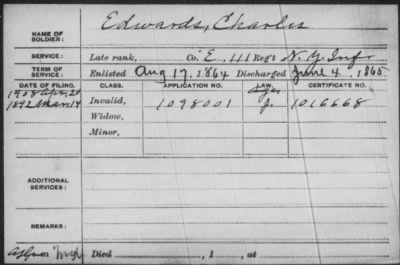 NAME OF SOLDIER: Edwards, Charles
SERVICE: Late rank, Co. E, 111 Reg't N.Y. Inf.
TERM OF SERVICE: Enlisted Aug 17, 1864 Discharged June 4, 1865
DATE OF FILING. CLASS. APPLICATION NO. LAW. CERTIFICATE NO.
1908 Apr. 20
1892 Mar. 14 Invalid, 1098001 1016668
Widow,
Minor,
ADDITIONAL SERVICES:
REMARKS:
Died , 1 , at